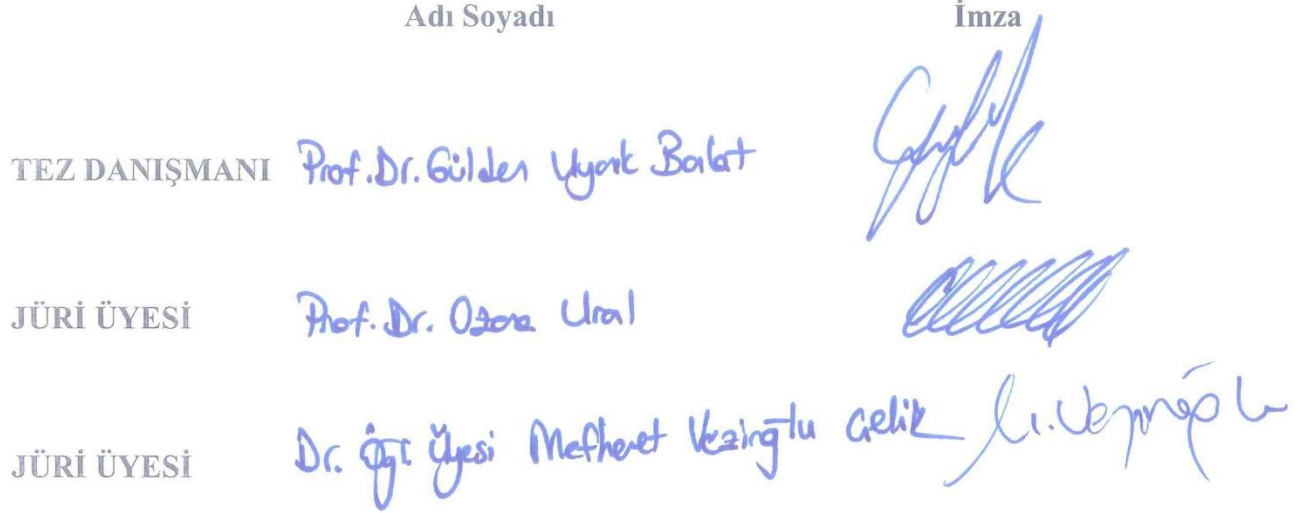 Adı Soyadı İmza
TEZ DANIŞMANI Prof. Dr. Gülden Uyanık Balat
JÜRİ ÜYESİ Prof. Dr. Ozana Ural
JÜRİ ÜYESİ Dr. Öğr. Üyesi Mefharet Veziroğlu Çelik M. Veziroğlu